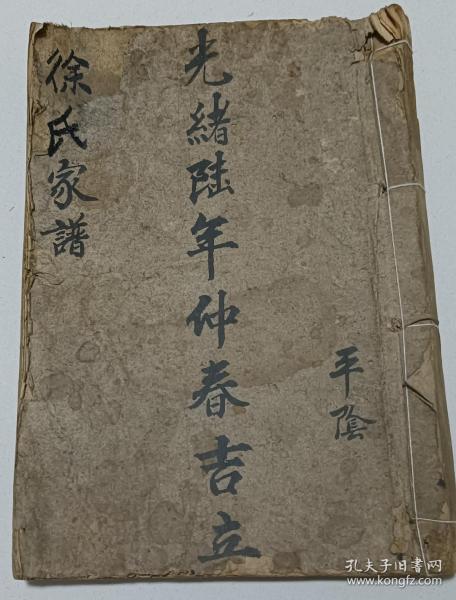 平陰
光緒陸年仲春吉立
徐氏家譜
孔夫子旧书网
www.kongfz.com